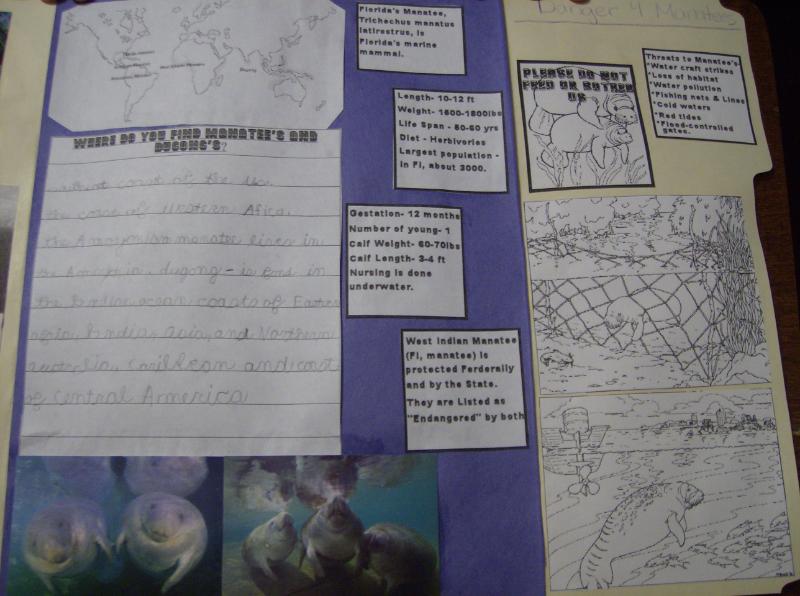 Florida's Manatee,
Trichechus manatus
latirostrus, is
Florida's marine
mammal.
Length- 10-12 ft
Weight- 1500-1800lbs
Life Span - 50-60 yrs
Diet - Herbivories
Largest population -
in Fl, about 3000.
Gestation- 12 months
Number of young- 1
Calf Weight- 60-70lbs
Calf Length- 3-4 ft
Nursing is done
underwater.
West Indian Manatee
(Fl, manatee) is
protected Ferderally
and by the State.
They are Listed as
"Endangered" by both
WHERE DO YOU FIND MANATEE'S AND
DUGONG'S?
coast of the
the coase of Western Africa.
the Amazonian manatee lives in
the dugong - is in
the Indian ocean coasts of
India, asia, and Northern
Caribbean and coast
of Central America
Danger 4 Manatees
PLEASE DO NOT
FEED OR BOTHER
US
Threats to Manatee's-
*Water craft strikes
*Loss of habitat
*Water pollution
*Fishing nets & Lines
*Cold waters
*Red tides
*Flood-controlled
gates.